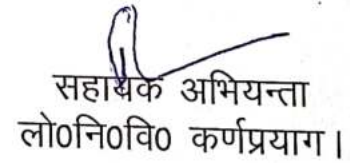 सहायक अभियन्ता
लो०नि०वि० कर्णप्रयाग।